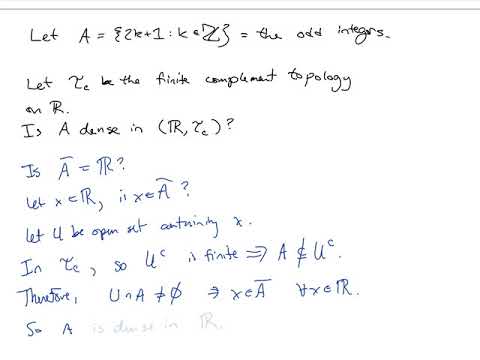 Let A = {2k+1 : k ∈ ℤ} = the odd integers.
Let τ_c be the finite complement topology
on ℝ.
Is A dense in (ℝ, τ_c)?
Is Ā = ℝ?
Let x ∈ ℝ, is x ∈ Ā ?
Let U be open set containing x.
In τ_c, so U^c is finite ⟹ A ⊄ U^c.
Therefore, U ∩ A ≠ ∅ ⇒ x ∈ Ā ∀x ∈ ℝ.
So A is dense in ℝ.